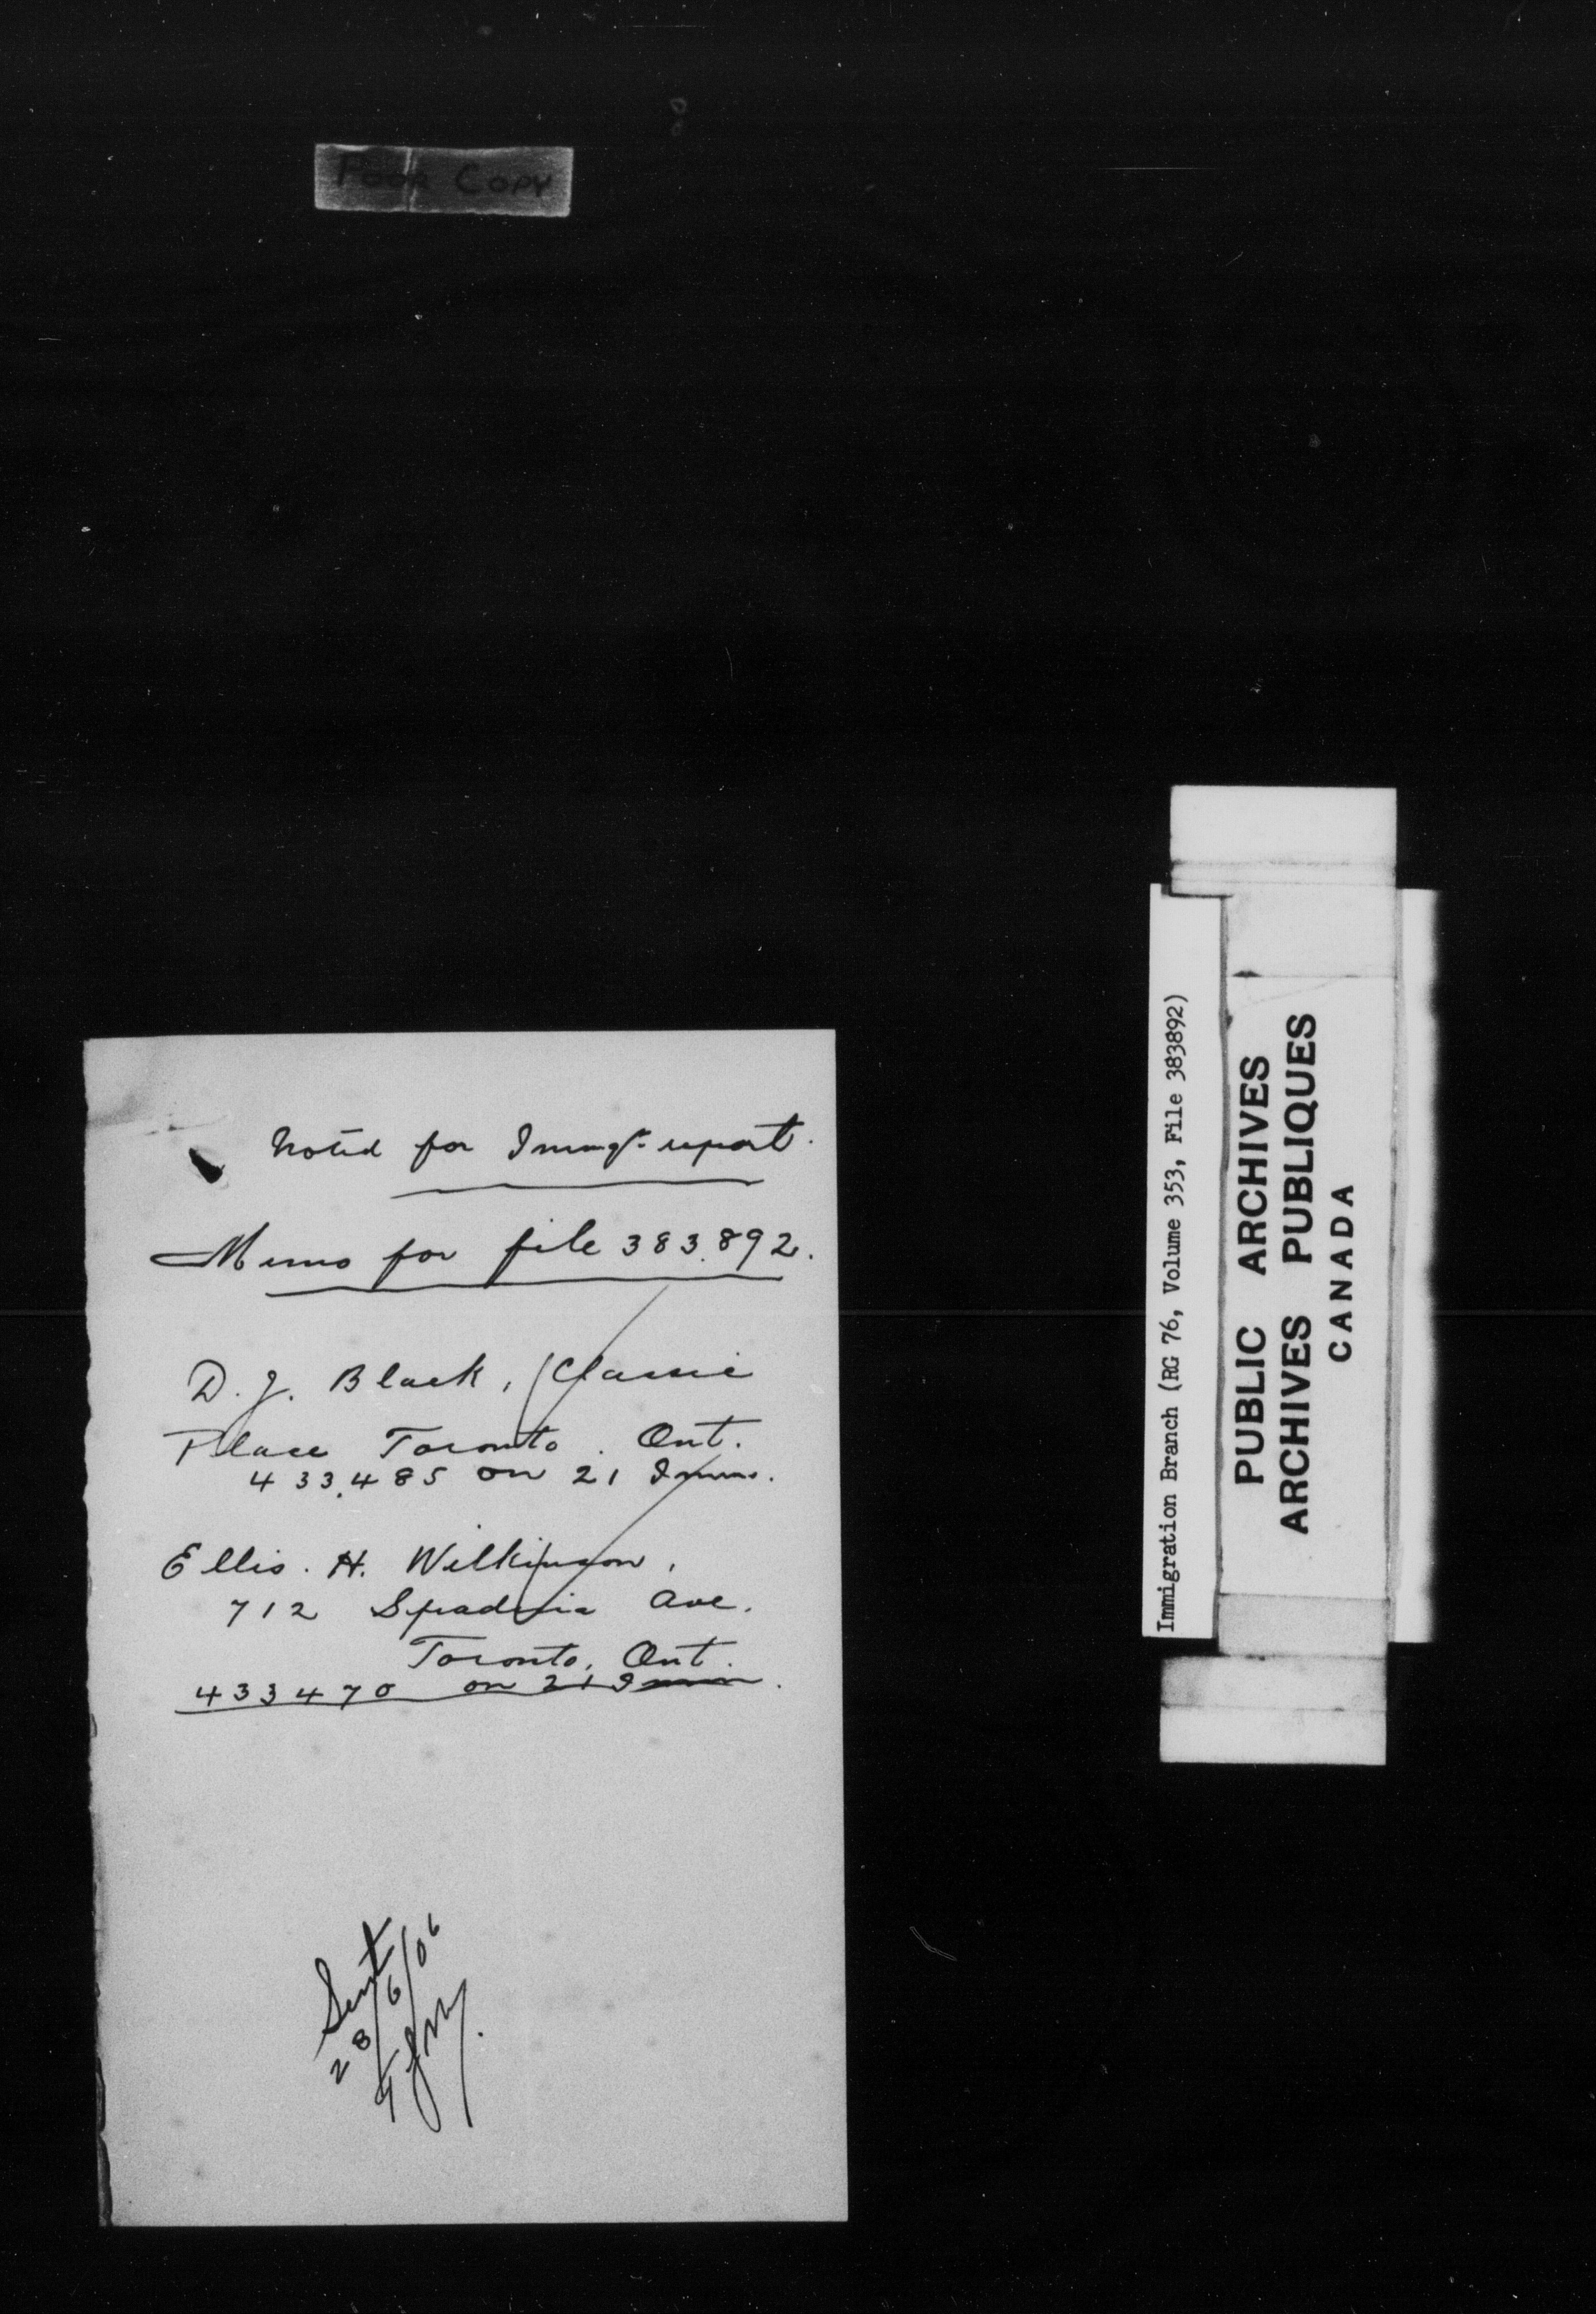 Poor Copy
Noted for Immgn report.
Memo for file 383.892.
D. J. Black, Classic
Place Toronto. Ont.
433.485 on 21 Imm.
Ellis. H. Wilkinson,
712 Spadina Ave.
Toronto, Ont.
433470 on 21 Imm.
Sent
28/6/06
Immigration Branch (RG 76, Volume 353, File 383892)
PUBLIC ARCHIVES
ARCHIVES PUBLIQUES
CANADA